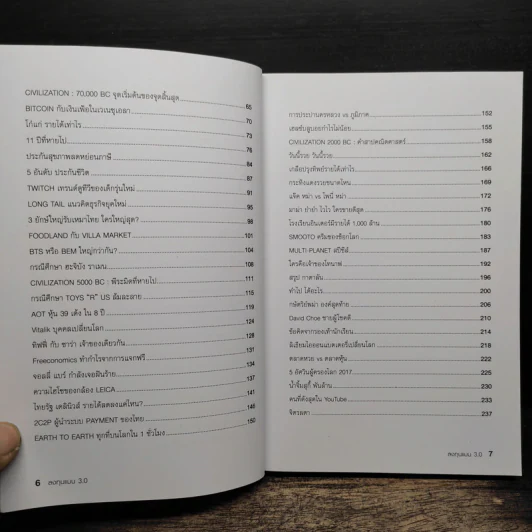 CIVILIZATION : 70,000 BC จุดเริ่มต้นของจุดสิ้นสุด 65
BITCOIN กับเงินเฟ้อในเวเนซุเอลา 70
โก๋แก่ รายได้เท่าไร 73
11 ปีที่หายไป 78
ประกันสุขภาพลดหย่อนภาษี 84
5 อันดับ ประกันชีวิต 87
TWITCH เทรนด์ดูทีวีของเด็กรุ่นใหม่ 91
LONG TAIL แนวคิดธุรกิจยุคใหม่ 95
3 ยักษ์ใหญ่รับเหมาไทย ใครใหญ่สุด? 98
FOODLAND กับ VILLA MARKET 101
BTS หรือ BEM ใหญ่กว่ากัน? 104
กรณีศึกษา ฮะจิบัง ราเมน 108
CIVILIZATION 5000 BC : พีระมิดที่หายไป 111
กรณีศึกษา TOYS "R" US ล้มละลาย 115
AOT หุ้น 39 เด้ง ใน 8 ปี 119
Vitalik บุคคลเปลี่ยนโลก 124
ทิฟฟี่ กับ ซาร่า เจ้าของเดียวกัน 128
Freeconomics ทำกำไรจากการแจกฟรี 131
จอลลี่ แบร์ กำลังเจอฝันร้าย 134
ความไฮโซของกล้อง LEICA 137
ไทยรัฐ เดลินิวส์ รายได้ลดลงแค่ไหน? 141
2C2P ผู้นำระบบ PAYMENT ของไทย 146
EARTH TO EARTH ทุกที่บนโลกใน 1 ชั่วโมง 150
6 ลงทุนแมน 3.0
การประปานครหลวง vs ภูมิภาค 152
เฮลซ์บลูบอยกำไรไม่น้อย 155
CIVILIZATION 2000 BC : คำสาปคณิตศาสตร์ 158
วันนี้รวย วันนี้รวย 162
เกลือปรุงทิพย์รายได้เท่าไร 166
กระทิงแดงรวยขนาดไหน 169
แจ๊ค หม่า vs โพนี่ หม่า 172
มาม่า ยำยำ ไวไว ใครขายดีสุด 176
โรงเรียนอินเตอร์มีรายได้ 1,000 ล้าน 180
SMOOTO ครีมซองช็อกโลก 183
MULTI-PLANET สปีชีส์ 187
ใครคือเจ้าของโทนาฟ 192
สรุป กาตาลัน 196
ทำไป ได้อะไร 200
กษัตริย์พม่า องค์สุดท้าย 206
David Choe ชายผู้โชคดี 210
ข้อคิดจากรองเท้านักเรียน 214
ลิเธียมไอออนแบตเตอรี่เปลี่ยนโลก 218
ตลาดหวย vs ตลาดหุ้น 222
5 อัศวินผู้ครองโลก 2017 225
น้ำจิ้มสุกี้ พันล้าน 230
คนที่ดังสุดใน YouTube 233
จิตรลดา 237
ลงทุนแมน 3.0 7